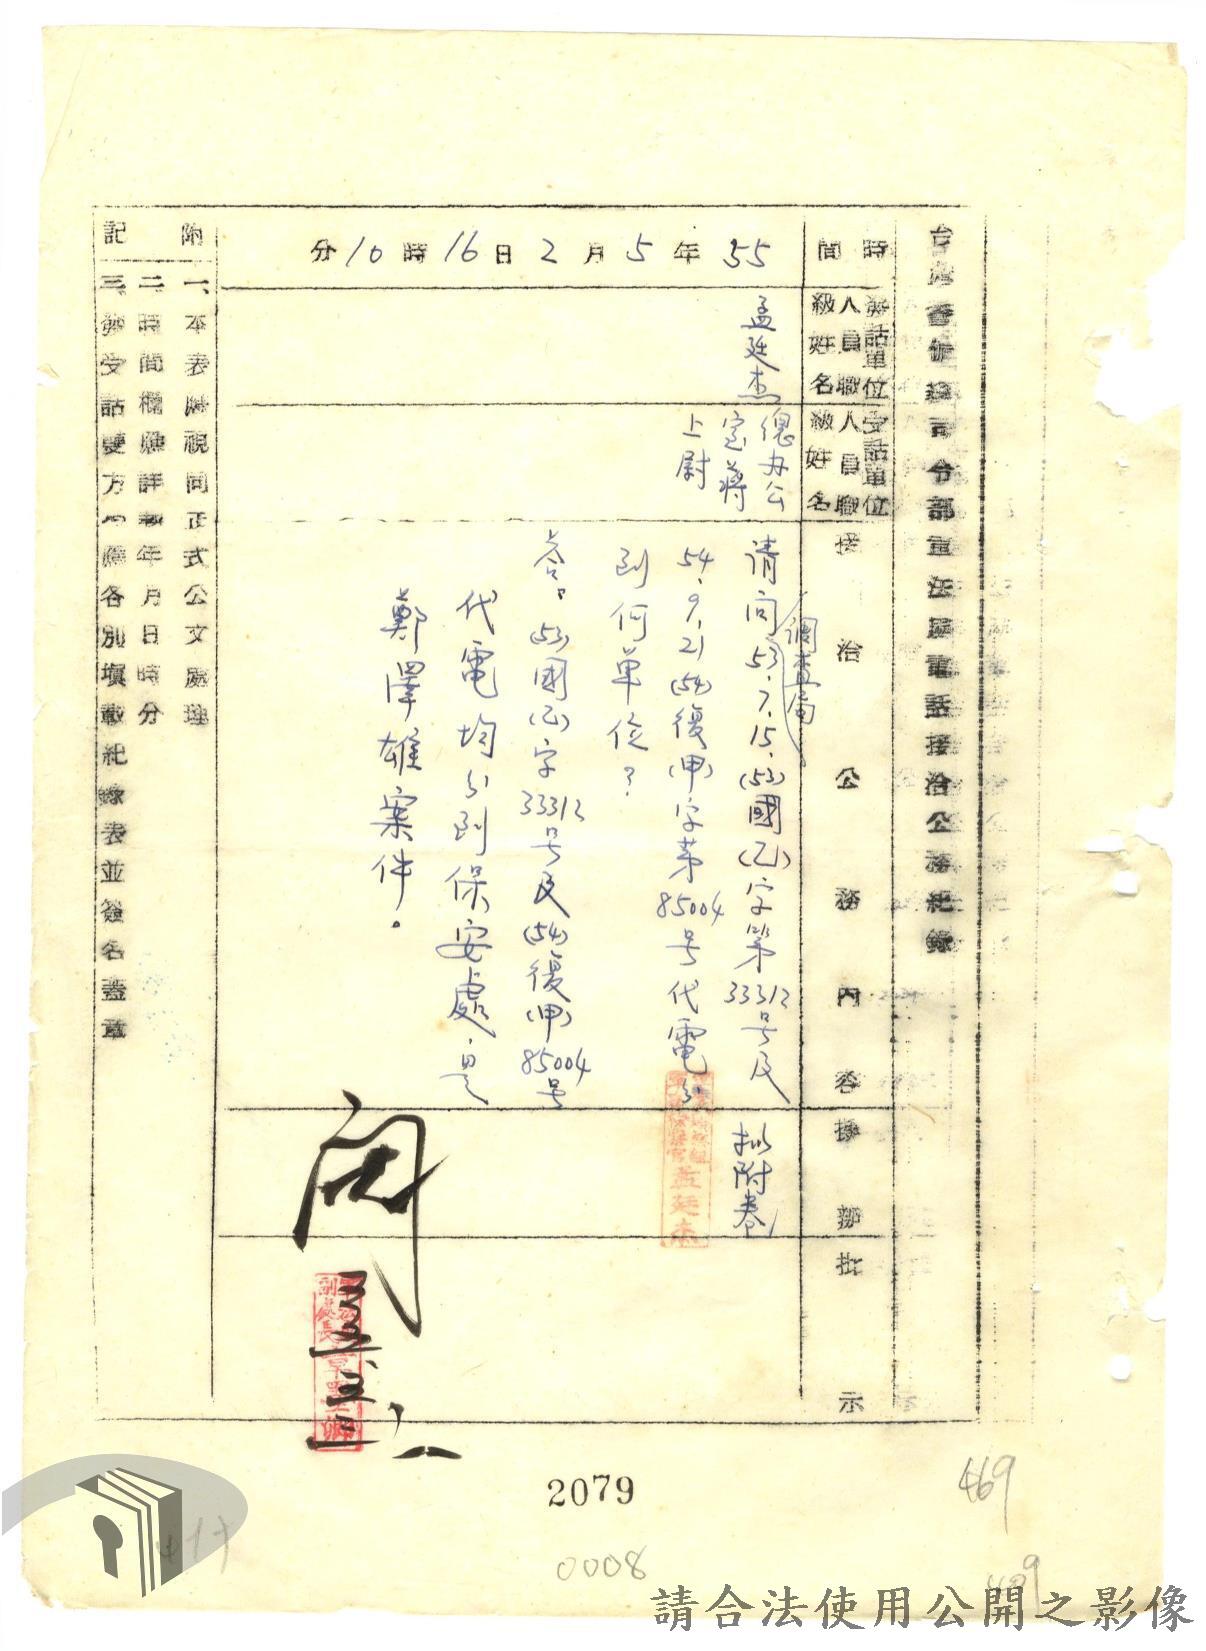 台灣警備總司令部軍法處電話接洽公務紀錄
時間
55年5月2日16時10分
發話單位人員職級姓名
孟廷杰
受話單位人員職級姓名
總办公
室蔣
上尉
接洽公務內容
請问53.7.15.(53)國(乙)字第33312号及
調查局
54.9.21(54)復(甲)字第85004号代電分
到何單位?
答。(53)國(乙)字33312号及(54)復(甲)85004号
代電均分到保安處,是
鄭澤雄案件。
擬辦
批示
拟附卷
孟廷杰
閱
副處長
附記
一、本表應視同正式公文處理
二、時間欄應詳載年月日時分
三、發受話雙方均應各別填載紀錄表並簽名蓋章
2079
469
0008
409
請合法使用公開之影像